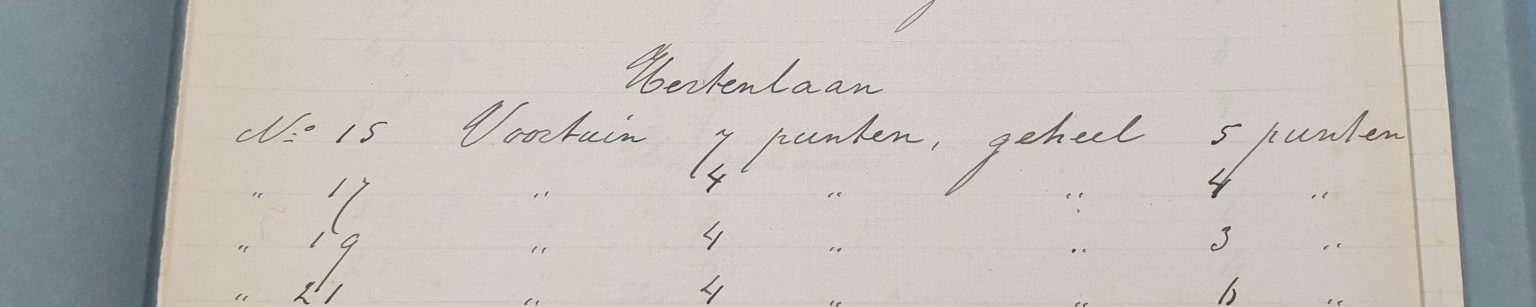 Hertenlaan
No 15 Voortuin 7 punten, geheel 5 punten
" 17 " 4 " " 4 "
" 19 " 4 " " 3 "
" 21 " 4 " " "